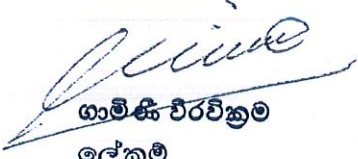 ගාමිණී වීරවික්‍රම
ලේකම්